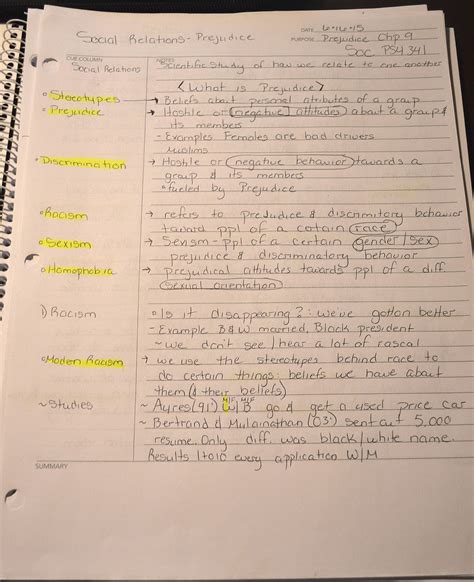 Social Relations - Prejudice
DATE 6-16-15
PURPOSE Prejudice Chp. 9
Soc PS4341
CUE COLUMN
NOTES
Social Relations
Scientific Study of how we relate to one another
<What is Prejudice>
• Stereotypes → Beliefs about personal attributes of a group
• Prejudice → Hostile or negative attitudes about a group &
its members
- Examples Females are bad drivers
Muslims
• Discrimination → Hostile or negative behavior towards a
group & its members
• fueled by Prejudice
• Racism → refers to prejudice & discrimitory behavior
toward ppl of a certain race
• Sexism → Sexism - ppl of a certain gender/sex
prejudice & discriminatory behavior
• Homophobia → prejudical attitudes towards ppl of a diff.
sexual orientation
1) Racism • Is it disappearing?: we've gotton better
- Example B&W married, Black president
~ we don't see/hear a lot of rascal
• Modern Racism → we use the stereotypes behind race to
do certain things: beliefs we have about
them (& their beliefs)
~ Studies ~ Ayres (91') W/B go & get a used price car
~ Bertrand & Mulainathan (03') sent out 5,000
resume. Only diff. was black/white name.
Results 1 to 10 every application W/M
SUMMARY